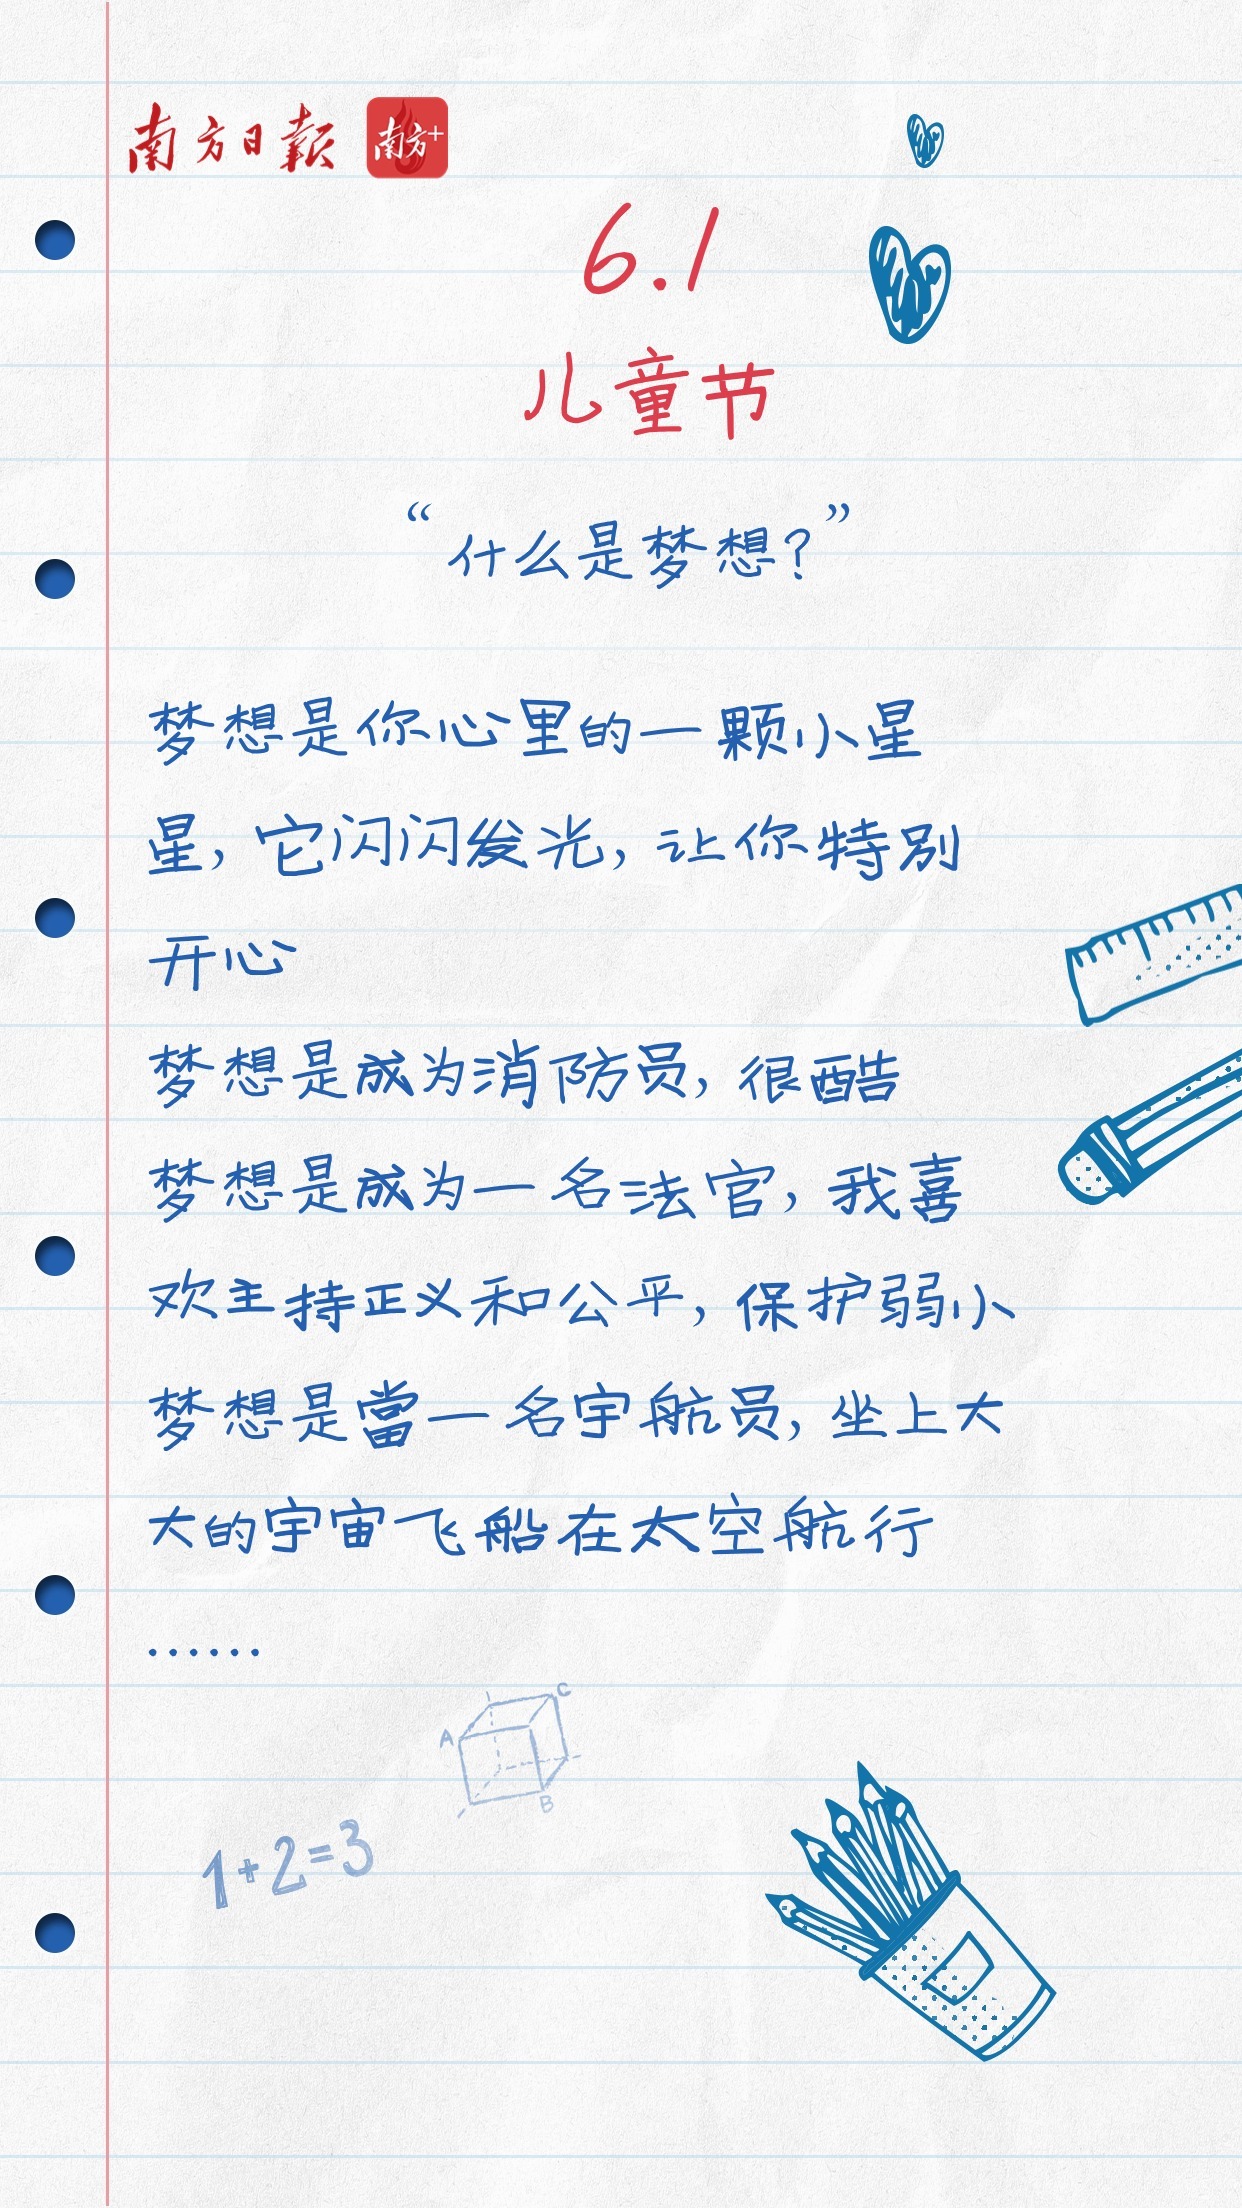 南方日报 南方+
6.1
儿童节
“什么是梦想?”
梦想是你心里的一颗小星
星，它闪闪发光，让你特别
开心
梦想是成为消防员，很酷
梦想是成为一名法官，我喜
欢主持正义和公平，保护弱小
梦想是當一名宇航员，坐上大
大的宇宙飞船在太空航行
……
A C
B
1+2=3